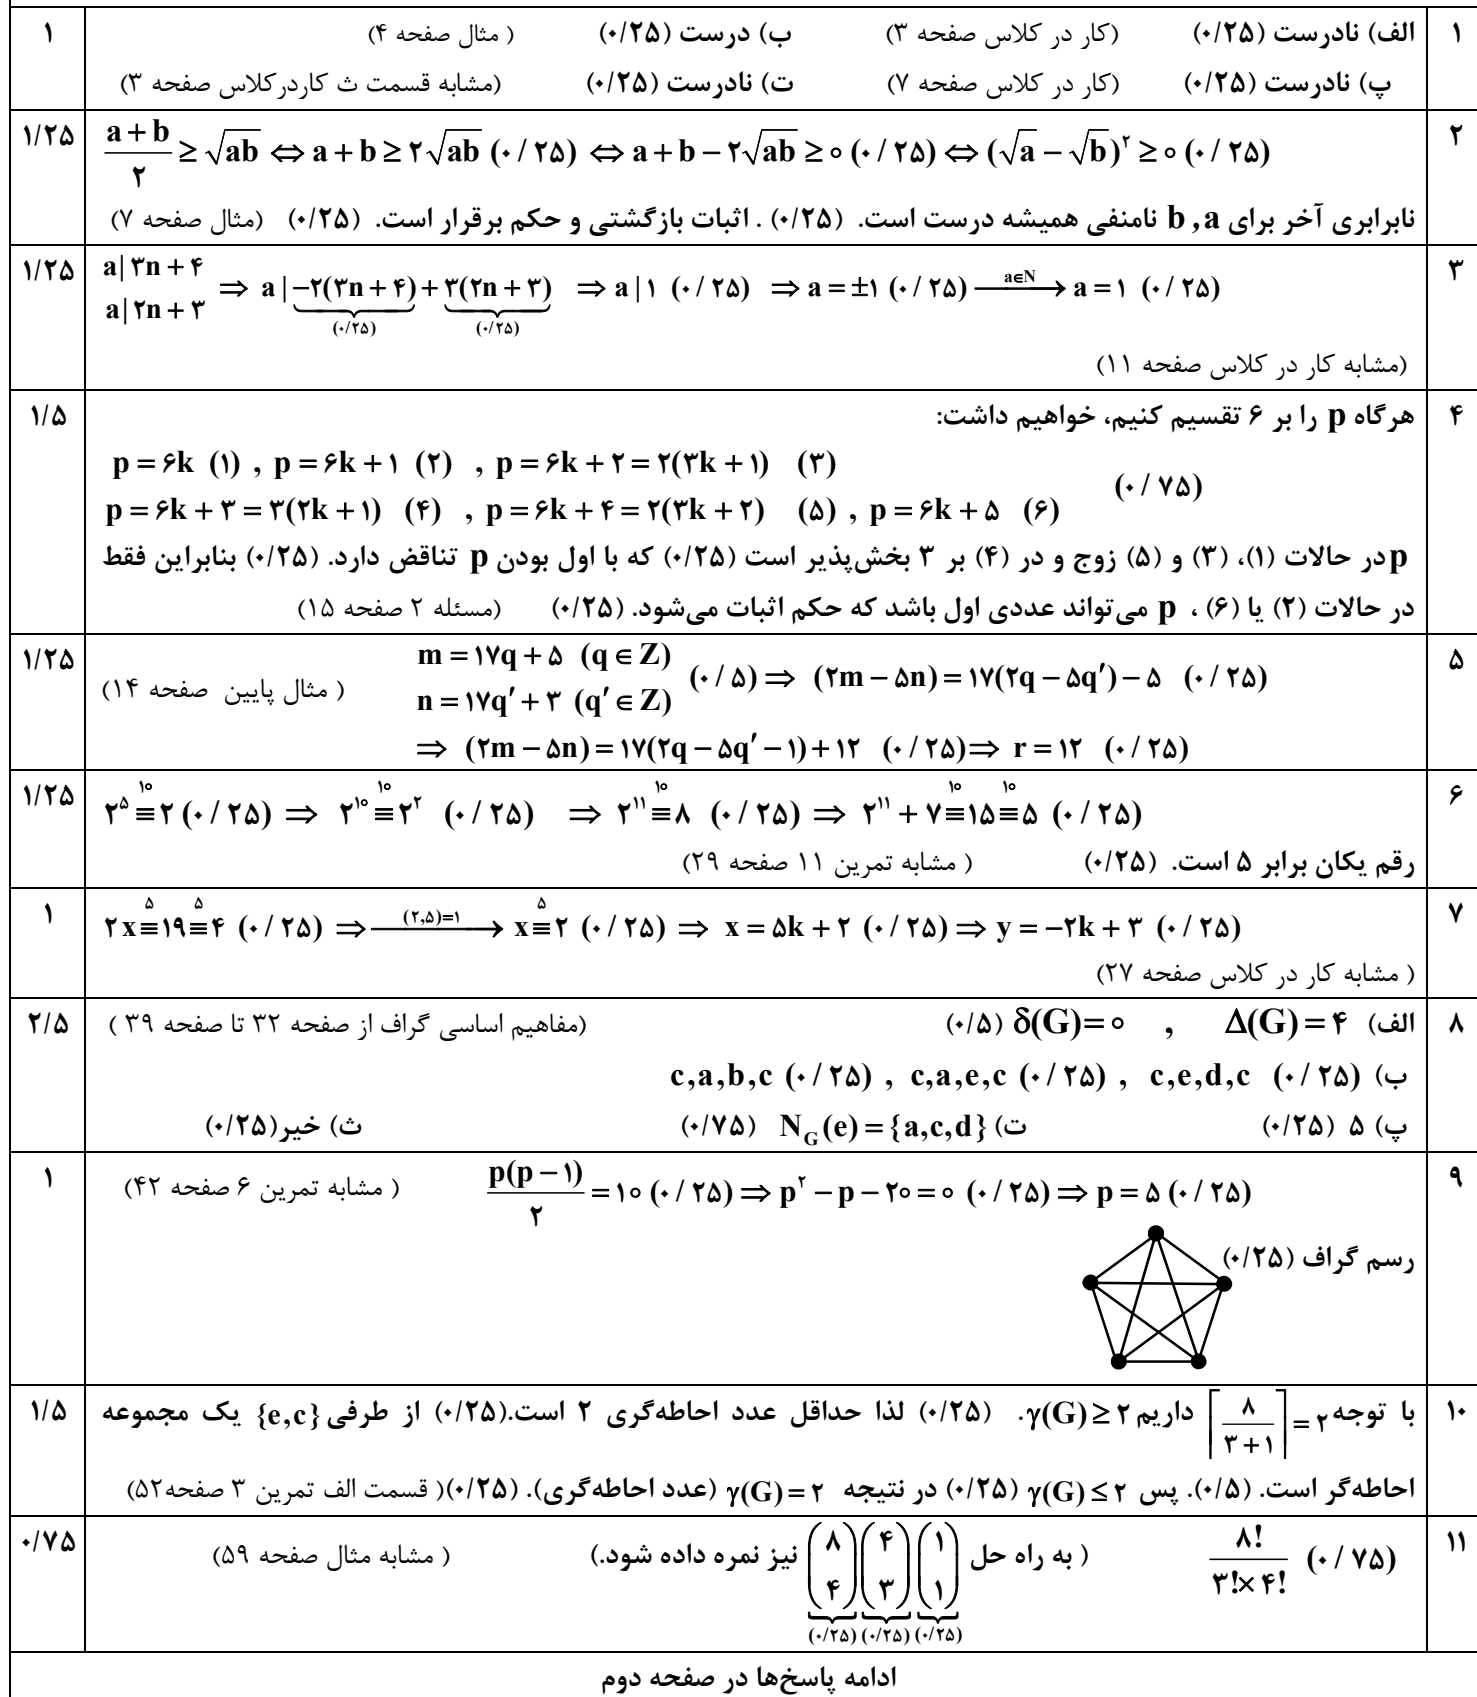 ۱ الف) نادرست (۰/۲۵) (کار در کلاس صفحه ۳) ب) درست (۰/۲۵) ( مثال صفحه ۴) ۱
پ) نادرست (۰/۲۵) (کار در کلاس صفحه ۷) ت) نادرست (۰/۲۵) (مشابه قسمت ث کاردرکلاس صفحه ۳)
۲ (a+b)/۲ ≥ √ab ⇔ a+b ≥ ۲√ab (۰/۲۵) ⇔ a+b−۲√ab ≥ ۰ (۰/۲۵) ⇔ (√a − √b)^۲ ≥ ۰ (۰/۲۵) ۱/۲۵
نابرابری آخر برای b , a نامنفی همیشه درست است. (۰/۲۵) . اثبات بازگشتی و حکم برقرار است. (۰/۲۵) (مثال صفحه ۷)
۳ a|۳n+۴ ۱/۲۵
a|۲n+۳ ⇒ a|−۲(۳n+۴) (۰/۲۵) + ۳(۲n+۳) (۰/۲۵) ⇒ a|۱ (۰/۲۵) ⇒ a=±۱ (۰/۲۵) —a∈N→ a=۱ (۰/۲۵)
(مشابه کار در کلاس صفحه ۱۱)
۴ هرگاه p را بر ۶ تقسیم کنیم، خواهیم داشت: ۱/۵
p=۶k (۱) , p=۶k+۱ (۲) , p=۶k+۲=۲(۳k+۱) (۳)
(۰/۷۵)
p=۶k+۳=۳(۲k+۱) (۴) , p=۶k+۴=۲(۳k+۲) (۵) , p=۶k+۵ (۶)
p در حالات (۱)، (۳) و (۵) زوج و در (۴) بر ۳ بخش‌پذیر است (۰/۲۵) که با اول بودن p تناقض دارد. (۰/۲۵) بنابراین فقط
در حالات (۲) یا (۶) ، p می‌تواند عددی اول باشد که حکم اثبات می‌شود. (۰/۲۵) (مسئله ۲ صفحه ۱۵)
۵ m=۱۷q+۵ (q∈Z) ۱/۲۵
n=۱۷q′+۳ (q′∈Z) (۰/۵) ⇒ (۲m−۵n)=۱۷(۲q−۵q′)−۵ (۰/۲۵) ( مثال پایین صفحه ۱۴)
⇒ (۲m−۵n)=۱۷(۲q−۵q′−۱)+۱۲ (۰/۲۵) ⇒ r=۱۲ (۰/۲۵)
۶ ۲^۵ ≡^۱۰ ۲ (۰/۲۵) ⇒ ۲^۱۰ ≡^۱۰ ۲^۲ (۰/۲۵) ⇒ ۲^۱۱ ≡^۱۰ ۸ (۰/۲۵) ⇒ ۲^۱۱+۷ ≡^۱۰ ۱۵ ≡^۱۰ ۵ (۰/۲۵) ۱/۲۵
رقم یکان برابر ۵ است. (۰/۲۵) ( مشابه تمرین ۱۱ صفحه ۲۹)
۷ ۲x ≡^۵ ۱۹ ≡^۵ ۴ (۰/۲۵) ⇒ —(۲,۵)=۱→ x ≡^۵ ۲ (۰/۲۵) ⇒ x=۵k+۲ (۰/۲۵) ⇒ y=−۲k+۳ (۰/۲۵) ۱
( مشابه کار در کلاس صفحه ۲۷)
۸ الف) Δ(G)=۴ , δ(G)=۰ (۰/۵) (مفاهیم اساسی گراف از صفحه ۳۲ تا صفحه ۳۹ ) ۲/۵
ب) c,a,b,c (۰/۲۵) , c,a,e,c (۰/۲۵) , c,e,d,c (۰/۲۵)
پ) ۵ (۰/۲۵) ت) N_G(e)={a,c,d} (۰/۷۵) ث) خیر(۰/۲۵)
۹ p(p−۱)/۲ = ۱۰ (۰/۲۵) ⇒ p^۲−p−۲۰=۰ (۰/۲۵) ⇒ p=۵ (۰/۲۵) ( مشابه تمرین ۶ صفحه ۴۲) ۱
رسم گراف (۰/۲۵)
۱۰ با توجه ⌈۸/(۳+۱)⌉=۲ داریم γ(G)≥۲. (۰/۲۵) لذا حداقل عدد احاطه‌گری ۲ است.(۰/۲۵) از طرفی {e,c} یک مجموعه ۱/۵
احاطه‌گر است. (۰/۵). پس γ(G)≤۲ (۰/۲۵) در نتیجه γ(G)=۲ (عدد احاطه‌گری). (۰/۲۵)( قسمت الف تمرین ۳ صفحه۵۲)
۱۱ ۸!/(۳!×۴!) (۰/۷۵) ( به راه حل (۸ ۴) (۰/۲۵) (۴ ۳) (۰/۲۵) (۱ ۱) (۰/۲۵) نیز نمره داده شود.) ( مشابه مثال صفحه ۵۹) ۰/۷۵
ادامه پاسخ‌ها در صفحه دوم